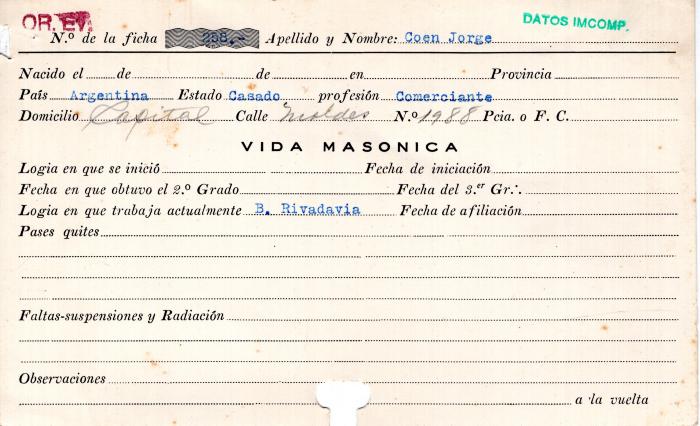 OR. EV.
DATOS IMCOMP.
N.º de la ficha 258.- Apellido y Nombre: Coen Jorge
Nacido el de de en Provincia
País Argentina Estado Casado profesión Comerciante
Domicilio Capital Calle Moldes N.º 1988 Pcia. o F. C.
VIDA MASONICA
Logia en que se inició Fecha de iniciación
Fecha en que obtuvo el 2.º Grado Fecha del 3.er Gr∴
Logia en que trabaja actualmente B. Rivadavia Fecha de afiliación
Pases quites
Faltas-suspensiones y Radiación
Observaciones
a la vuelta